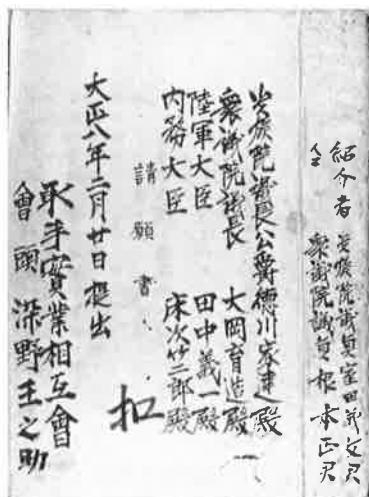 紹介者 貴族院議員室田義文君
仝 衆議院議員根本正君
貴族院議長公爵徳川家達殿
衆議院議長 大岡育造殿
陸軍大臣 田中義一殿
内務大臣 床次竹二郎殿
請願書
扣
大正八年二月廿日提出
取手實業相互會
會頭 深野王之助